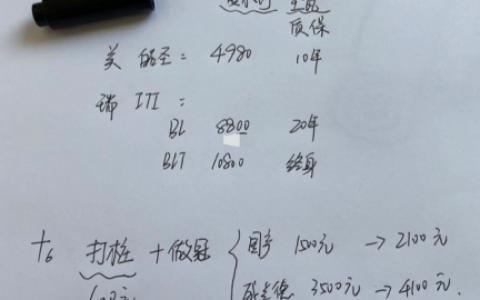 质保
美 皓圣 = 4980 10年
瑞 ITI =
BL 8800 20年
BLT 10800 终身
+6 打桩 + 做冠 { 国产 1500元 → 2100元
3500元 → 4100元.